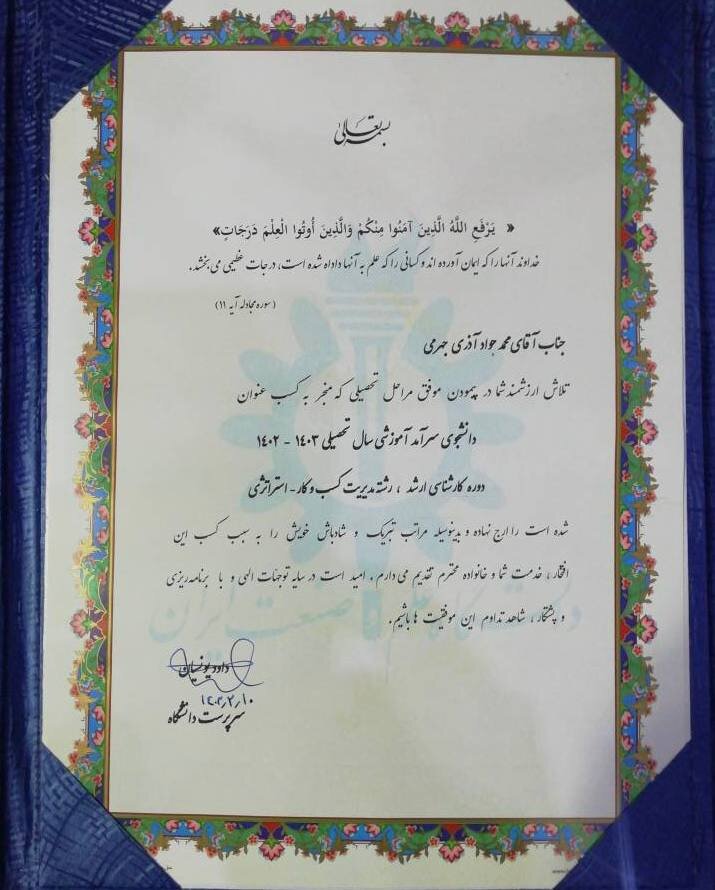 بسمه تعالی
« يَرْفَعِ اللَّهُ الَّذِينَ آمَنُوا مِنْكُمْ وَالَّذِينَ أُوتُوا الْعِلْمَ دَرَجَاتٍ»
خداوند آنها را که ایمان آورده اند و کسانی را که علم به آنها داداه شده است، درجات عظیمی می بخشد.
(سوره مجادله آیه ۱۱)
جناب آقای محمد جواد آذری جهرمی
تلاش ارزشمند شما در پیمودن موفق مراحل تحصیلی که منجر به کسب عنوان
دانشجوی سرآمد آموزشی سال تحصیلی ۱۴۰۳ - ۱۴۰۲
دوره کارشناسی ارشد ، رشته مدیریت کسب و کار - استراتژی
شده است را ارج نهاده و بدینوسیله مراتب تبریک و شادباش خویش را به سبب کسب این
افتخار ، خدمت شما و خانواده محترم تقدیم می دارم . امید است در سایه توجهات الهی و با برنامه ریزی
و پشتکار ، شاهد تداوم این موفقیت ها باشیم.
دانشگاه علم و صنعت ایران
داود یونسیان
۱۴۰۳٫۲٫۱۰
سرپرست دانشگاه